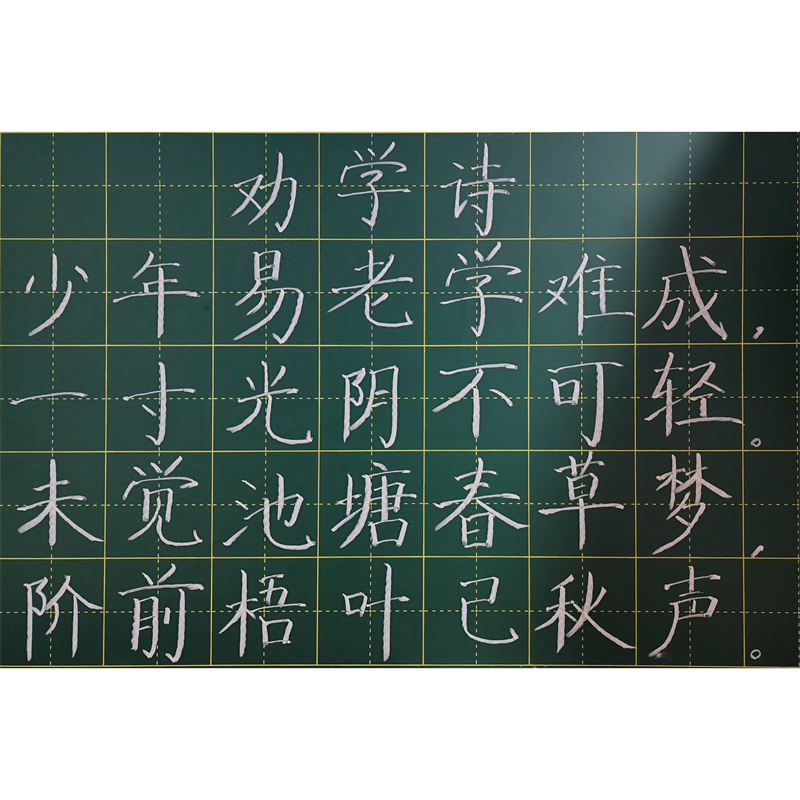 劝学诗
少年易老学难成，
一寸光阴不可轻。
未觉池塘春草梦，
阶前梧叶已秋声。